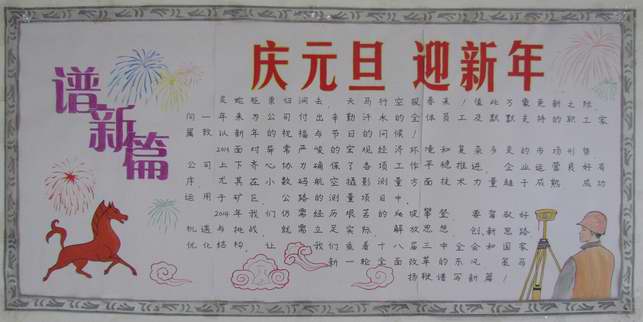 庆元旦 迎新年
谱新篇
灵蛇归洞去，天马行空报春来！值此万象更新之际，
向一年来为公司付出辛勤汗水的全体员工及默默支持的职工家
属致以新年的祝福与节日的问候！
年面对异常严峻的经济环境和复杂多变的市场形势
公司上下齐心协力确保了各项工作平稳推进，企业运营良好有
序，尤其在小数码航空摄影测量方面技术力量趋于成熟，成功
运用于矿区、公路的测量项目中。
2014年我们仍需经历艰苦的攀登，要
机遇与挑战，就需立足实际，解放思想，创新思路
优化结构，让我们乘着十八届三中全会和国家
新一轮全面改革的东风，策马
扬鞭谱写新篇！